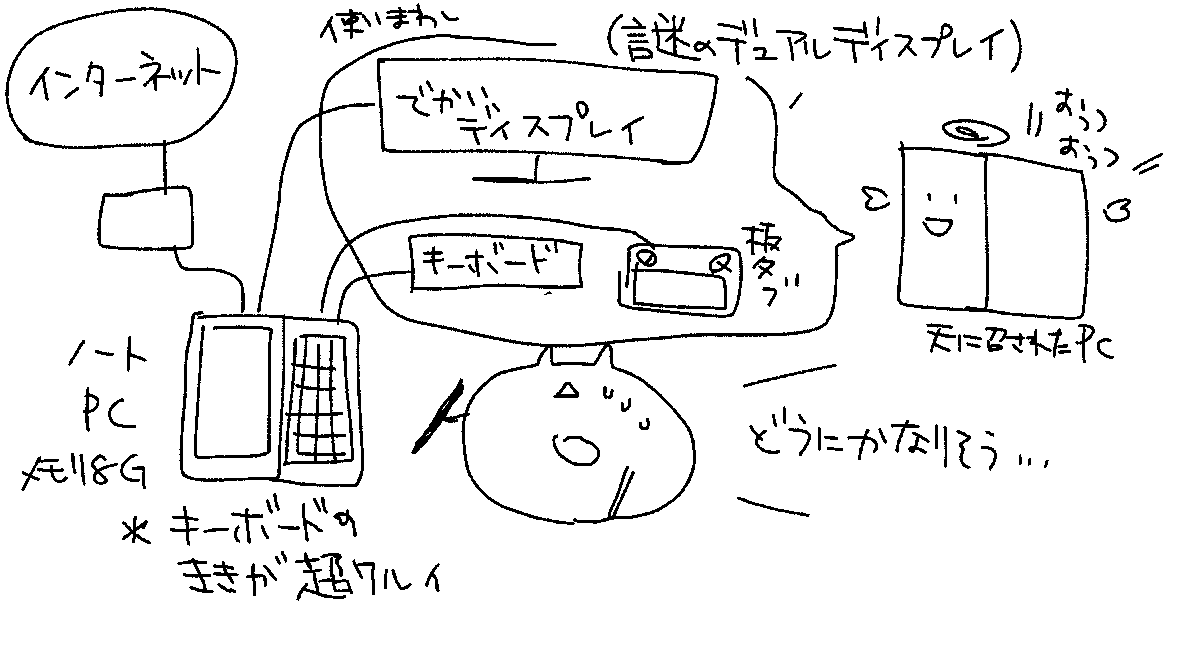 使いまわし
(謎のデュアルディスプレイ)
インターネット
でかい
ディスプレイ
おうつ
おうつ
キーボード
板タブ
天に召されたPC
ノート
PC
メモリ8G
どうにかなりそう...
* キーボードの
ききが超ワルイ